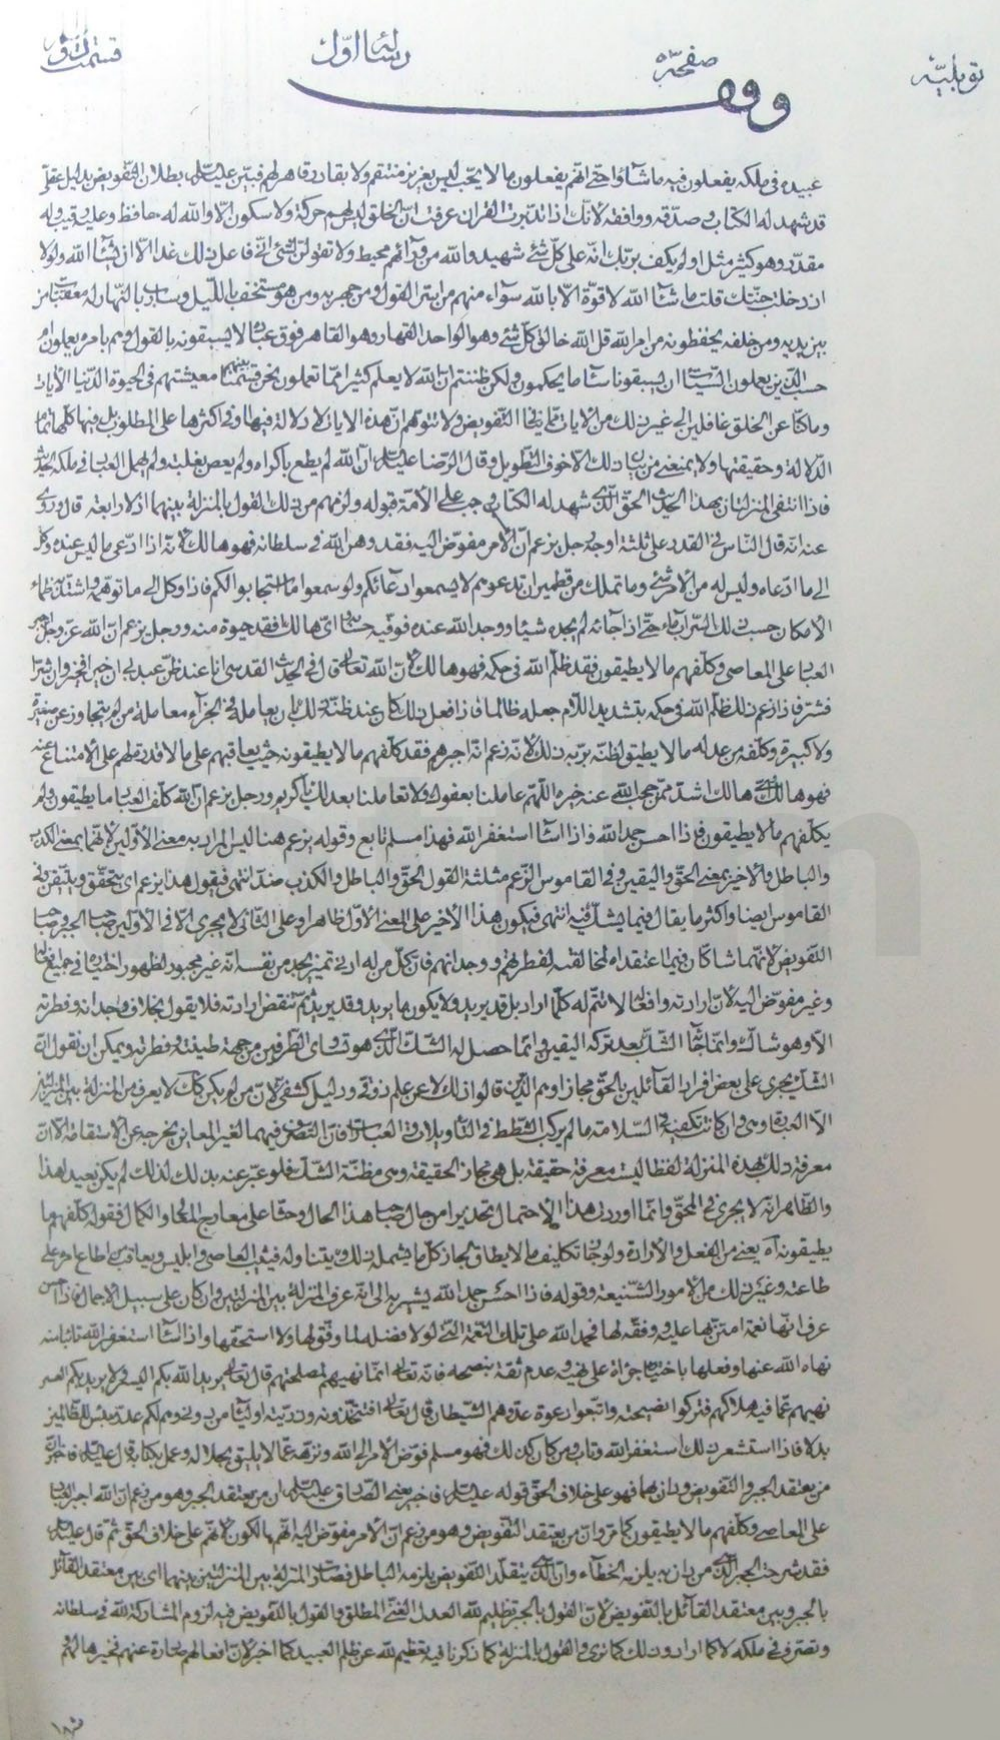 توبلیه صفحة رسالة اوّل قسمت
وقف
عبیده فی ملکه یفعلون فیه ما شاؤا حتی انهم یفعلون ما لا یحب لیس بعزیز منتقم ولا بقادر قاهر لهم فبین علیه السلم بطلان التفویض بدلیل عقلی
قد شهد له الکتاب و صدّقه ووافقه لانّک اذا تدبّرت القران عرفت انّ الخلق لهم حرکة ولا سکون الّا والله له حافظ وعلیه رقیب وله
مقدّر وهو کثیر مثل اولم یکف بربّک انه علی کلّ شئ شهید والله من ورآئهم محیط ولا تقولنّ لشئ انّی فاعل ذلک غدا الّا ان یشآء الله ولولا
اذ دخلت جنّتک قلت ما شآء الله لا قوّة الّا بالله سوآء منهم من اسرّ القول ومن جهر به ومن هو مستخف باللیل وسارب بالنهار له معقبات من
بین یدیه ومن خلفه یحفظونه من امر الله قل الله خالق کلّ شئ وهو الواحد القهار وهو القاهر فوق عباده لا یسبقونه بالقول وهم بامره یعملون ام
حسب الذین یعملون السیئات ان یسبقونا سآء ما یحکمون ولکن ظننتم ان الله لا یعلم کثیرا ممّا تعملون نحن قسمنا بینهم معیشتهم فی الحیوة الدّنیا الآیات
وما کنّا عن الخلق غافلین الی غیر ذلک من الآیات ممّا ینفی التفویض ولا تتوهّم انّ هذه الآیات لا دلالة فیها او فی اکثرها علی المطلوب بل فیها کلّها تمام
الدّلالة وحقیقتها ولا یمنعنی من بیان ذلک الّا خوف التطویل وقال الرّضا علیه السلم ان الله لم یطع باکراه ولم یعص بغلبة ولم یهمل العباد فی ملکه الحدیث
فاذا انتفی المنزلتان بهذا الحدیث الحقّ الذی شهد له الکتاب وجب علی الأمّة قبوله ولزمهم من ذلک القول بالمنزلة بینهما اذ لا رابعة قال وروی
عنه انه قال النّاس فی القدر علی ثلثة اوجه رجل یزعم انّ الأمر مفوّض الیه فقد وهن الله فی سلطانه فهو هالک لانّه اذا ادّعی ما لیس عنده وکل
الی ما ادّعاه ولیس له من الأمر شئ وما تملک من قطمیر ان تدعوهم لا یسمعوا دعائکم ولو سمعوا ما استجابوا لکم فاذا وکل الی ما توهّمه واشتد ظماء
الأمکان حسب ذلک السّراب ماء حتّی اذا جآئه لم یجده شیئا ووجد الله عنده فوفّیه حسابه ای هالک فقد حیوة منه ورجل یزعم انّ الله عزّ وجلّ اجبر
العباد علی المعاصی وکلّفهم ما لا یطیقون فقد ظلّم الله فی حکمه فهو هالک لانّ الله تعالی قال فی الحدیث القدسی انا عند ظنّ عبدی بی ان خیرا فخیر وان شرّا
فشرّ فاذا زعم ذلک ظلّم الله فی حکمه بتشدید اللّام جعله ظالما فاذا فعل ذلک کان عند ظنّه
ولا کبیرة وکلّفه من عدله ما لا یطیق لظنّه بربّه ذلک لانّه زعم انّه اجبرهم فقد کلّفهم ما لا یطیقونه حیث یعاقبهم علی ما لا قدرة لهم علی الامتناع عنه
فهو هالک هالک اشدّ ممّن حجب الله عنه خیره اللّهم عاملنا بعفوک ولا تعاملنا بعدلک یا کریم ورجل یزعم انّ الله کلّف العباد ما یطیقون ولم
یکلّفهم ما لا یطیقون فاذا احسن حمد الله واذا اسآء استغفر الله فهذا مسلم بالغ وقوله یزعم هنا لیس المراد به معنی الأوّلین لانّهما بمعنی الکذب
والباطل والأخیر بمعنی الحقّ والیقین وفی القاموس الزّعم مثلثة القول الحقّ والباطل والکذب ضدّ انتهی فیقول هذا یزعم ای یتحقّق ویتیقّن وفی
القاموس ایضا واکثر ما یقال فیما یشکّ فیه انتهی فیکون هذا الأخیر علی المعنی الأوّل ظاهرا وعلی الثّانی لا یجری الّا فی الأوّلین صاحب الجبر وصاحب
التفویض لانّهما شاکّان فیما اعتقداه لمخالفته لفطرتهم ووجدانهم فانّ کلّ من له ادنی تمییز یجد من نفسه انّه غیر مجبور لظهور اختیاره فی جمیع افعاله
وغیر مفوّض الیه لانّ ارادته وافعاله لا تتمّ له کلّما اراد بل قد یرید ولا یکون ما یرید وقد یرید ثمّ تنقض ارادته فلا یقول بخلاف وجدانه وفطرته
الّا وهو شاکّ وانّما جآء الشّکّ بعد ترکه الیقین وانّما حصل له الشّکّ الّذی هو تساوی الطّرفین من جهة طینته وفطرته ویمکن ان نقول انّ
الشّکّ یجری علی بعض افراد القآئلین بالحقّ مجازا وهم الّذین قالوا ذلک لا عن علم ذوقی ودلیل کشفی لانّ من لم یکن کذلک لا یعرف من المنزلة بین المنزلتین
الّا العبارة وهی وان کانت تکفیه فی السّلامة ما لم یرکب الشّطط فی التّأویلات فی العبارات فانّ التّصرّف فیهما لغیر المعاین یخرجه عن الاستقامة لانّ
معرفة ذلک بهذه المنزلة لفظا لیست معرفة حقیقة بل هی مجاز الحقیقة وهی مظنّة الشّکّ فلو عبّر عنه بذلک لذلک لم یکن بعیدا هذا
والظّاهر انّه لا یجری فی المحقّ وانّما اوردنا هذا الاحتمال تحذیرا من حال صاحب هذا الحال وحثّا علی معارج المعالی والکمال فقوله کلّفهم ما
یطیقونه آه یعنی من الفعل والأرادة ولو جاز تکلیف ما لا یطاق لجاز کلّ ما یشمله ذلک ویتناوله فیثیب العاصی وابلیس ویعاقب من اطاع امره علی
طاعته وغیر ذلک من الأمور الشّنیعة وقوله فاذا احسن حمد الله یشیر به الی انّه عرف المنزلة بین المنزلتین وان کان علی سبیل الاجمال فاذا احسن
عرف انّها نعمة امتنّ بها علیه ووفّقه لها فحمد الله علی تلک النّعمة الّتی لولا فضله لما وفّق لها ولا استحقّها واذا اسآء استغفر الله تائبا منه
نهاه الله عنها وفعلها باختیاره جرأة علی نهیه وعدم ثقة بنصحه فانّه تعالی انّما نهیهم لمصلحتهم قال تعالی یرید الله بکم الیسر ولا یرید بکم العسر
نهیهم عمّا فیه هلاکهم فترکوا نصیحته واتّبعوا دعوة عدوّهم الشّیطان قال تعالی افتتّخذونه وذرّیّته اولیآء من دونی وهم لکم عدوّ بئس للظّالمین
بدلا فاذا استشعر ذلک استغفر الله وتاب ومن کان کذلک فهو مسلم فوّض الأمر الی الله ونزّهه عمّا لا یلیق بجلاله وعمل بکتابه قال علیه السلم فاخبر انّ
من یعتقد الجبر والتّفویض ودان بهما فهو علی خلاف الحقّ قوله علیه السلم فاخبر یعنی الصّادق علیه السلم ان من یعتقد الجبر وهو من زعم انّ الله اجبر العباد
علی المعاصی وکلّفهم ما لا یطیقون کما مرّ وان من یعتقد التّفویض وهو من زعم انّ الأمر مفوّض الیه انّهم هالکون لانّهم علی خلاف الحقّ ثمّ قال علیه السلم
فقد شرحت الجبر الّذی من دان به یلزمه الخطآء وانّ الّذی یتقلّد التّفویض یلزمه الباطل فصارت المنزلة بین المنزلتین بینهما ای بین معتقد القآئل
بالجبر وبین معتقد القآئل بالتّفویض لانّ القول بالجبر تظلیم لله العدل الغنیّ المطلق والقول بالتّفویض فیه لزوم المشارکة لله فی سلطانه
وتصرّف فی ملکه لا کما اراد وذلک کما تری والقول بالمنزلة کما ذکرنا فیه تعظیم لله عن ظلم العبید کما اخبر لانّ افعالهم صادرة عنهم